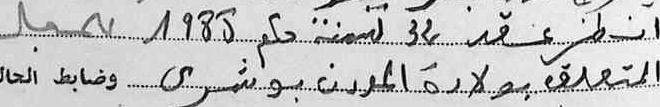 انظر عقد 32 لسنة حكم 1985 المسجل
المتعلق بولادة المدون بو شرى وضابط الحا